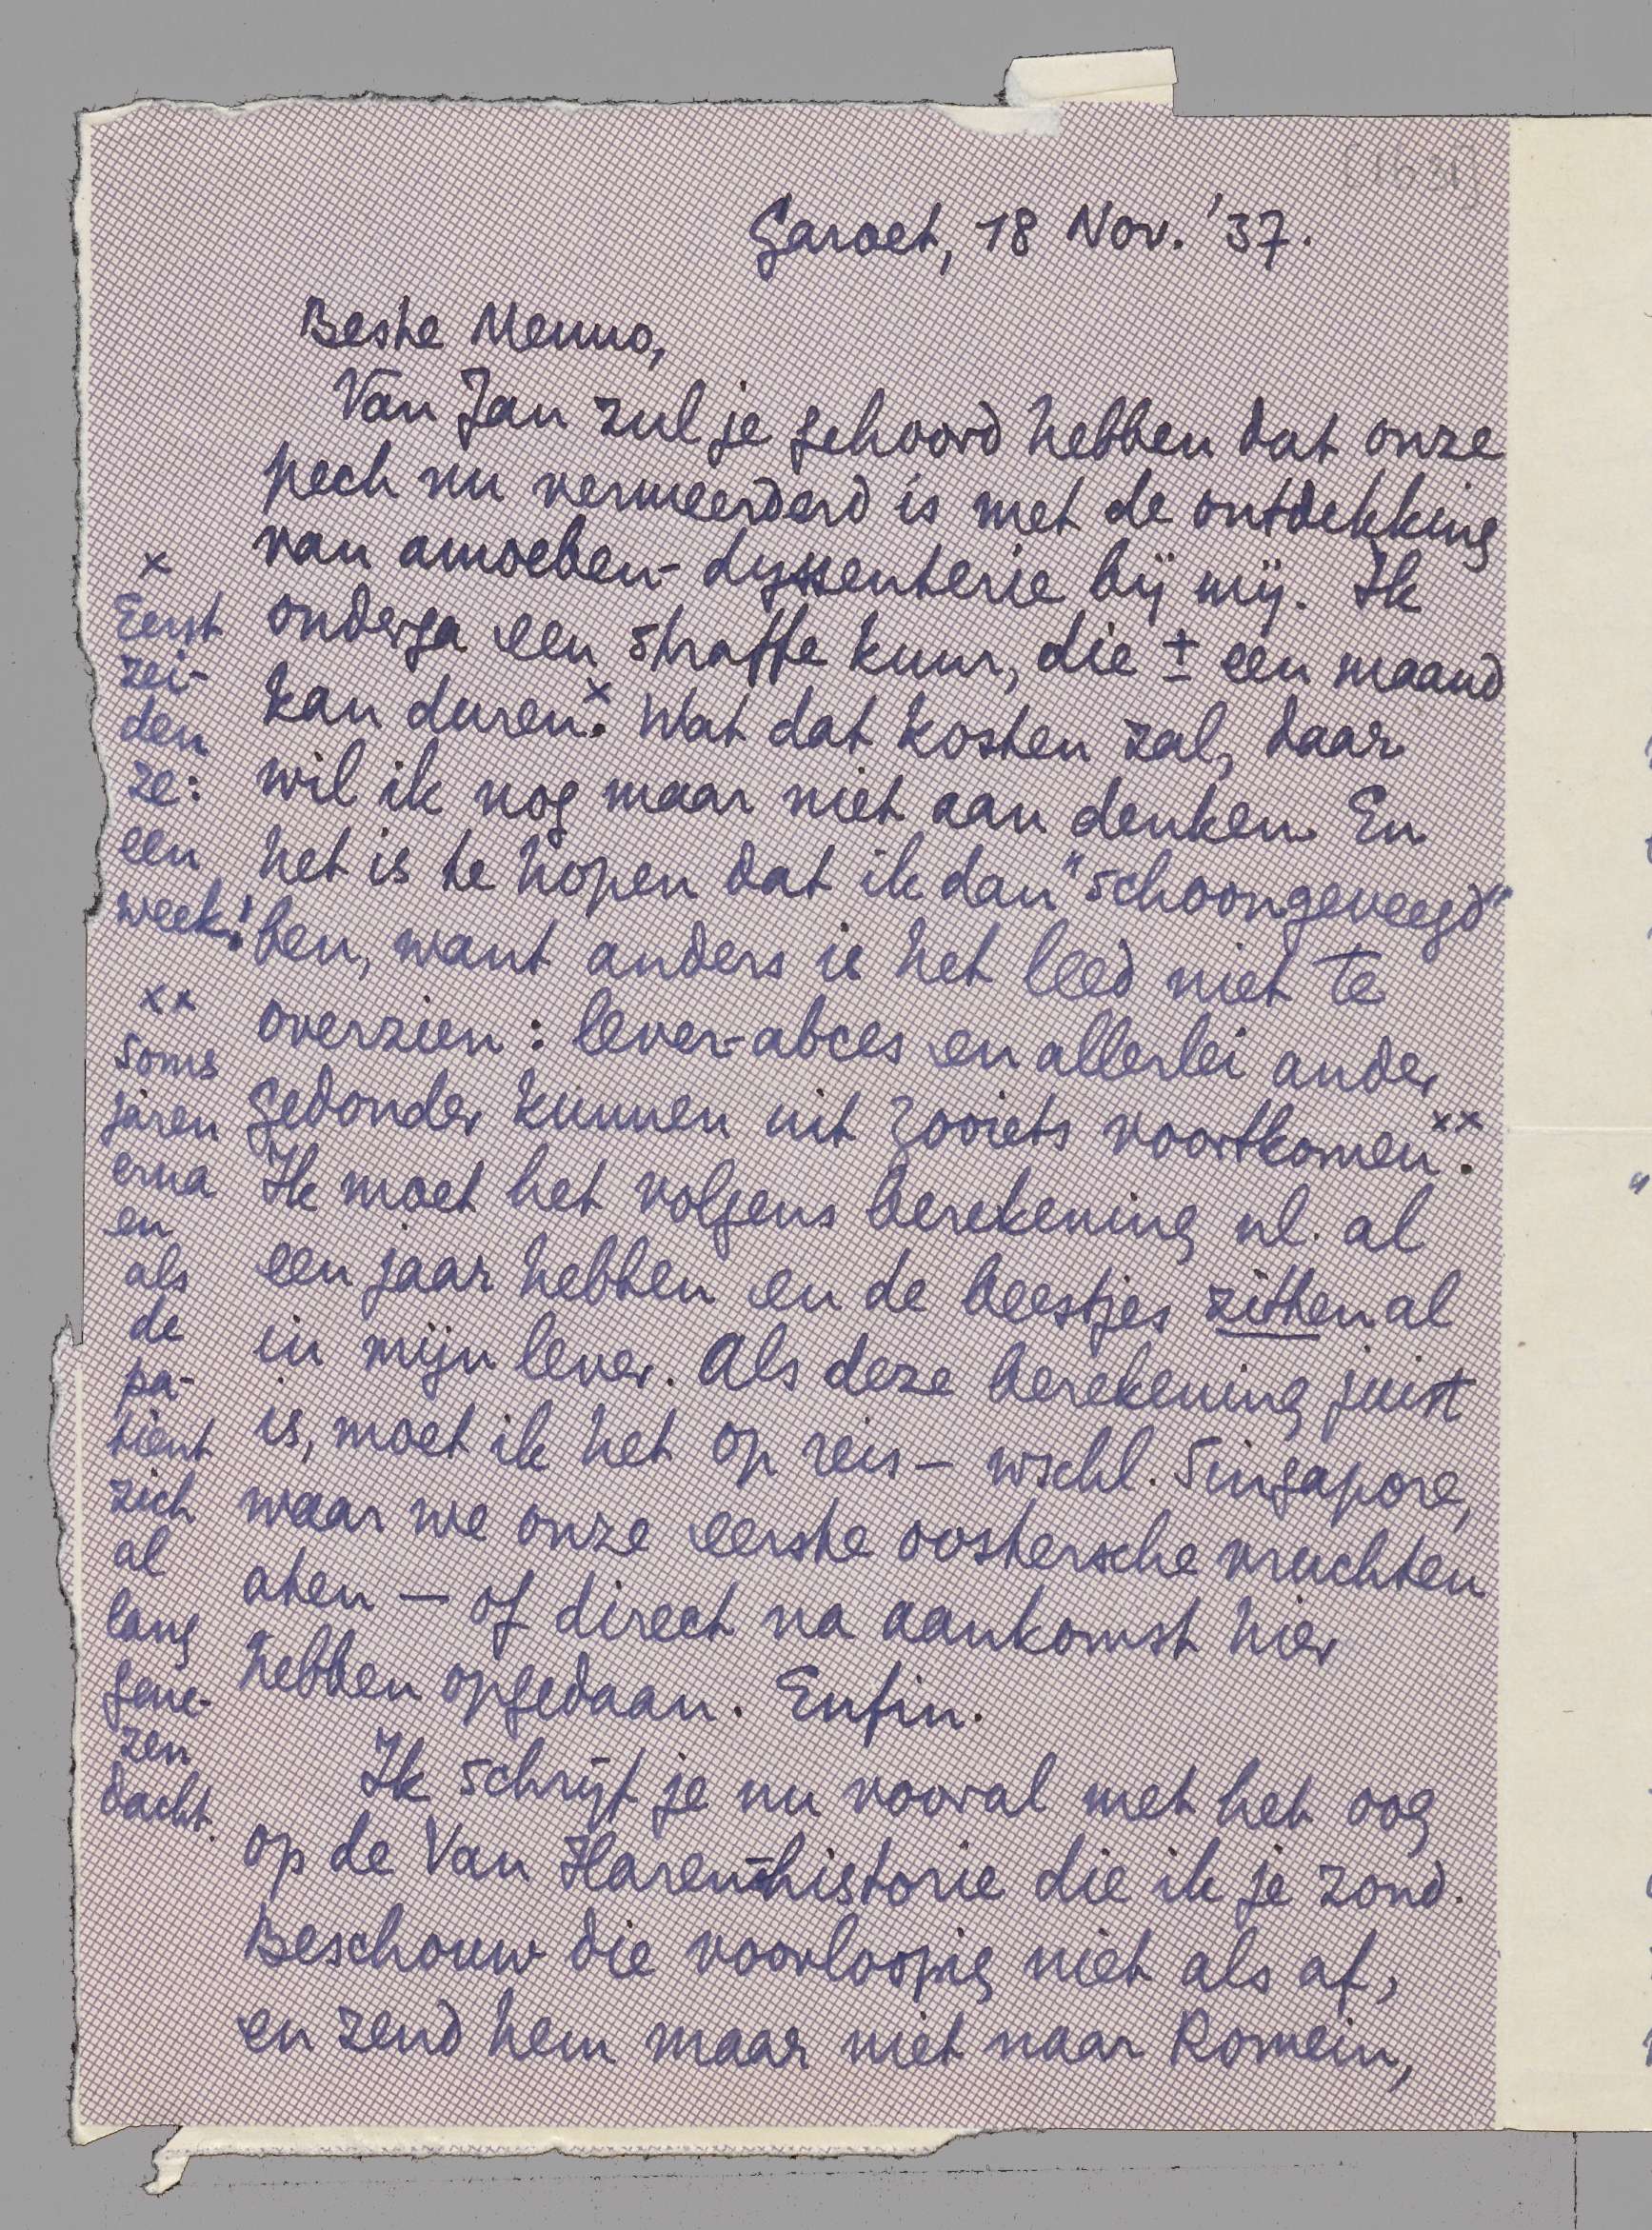 [1631]
Garoet, 18 Nov. '37.
Beste Menno,
Van Jan zul je gehoord hebben dat onze
pech nu vermeerderd is met de ontdekking
van amoeben-dyssenterie bij mij. Ik
onderga een straffe kuur, die ± een maand
kan duren.x Wat dat kosten zal, daar
wil ik nog maar niet aan denken. En
het is te hopen dat ik dan "schoongeveegd"
ben, want anders is het leed niet te
overzien: lever-abces en allerlei ander
gedonder kunnen uit zooiets voortkomen.xx
Ik moet het volgens berekening nl. al
een jaar hebben en de beestjes zitten al
in mijn lever. Als deze berekening juist
is, moet ik het op reis – wschl. Singapore,
waar we onze eerste oostersche vruchten
aten – of direct na aankomst hier
hebben opgedaan. Enfin.
Ik schrijf je nu vooral met het oog
op de Van Haren-historie die ik je zond.
Beschouw die voorloopig niet als af,
en zend hem maar niet naar Romein,
x
Eerst
zei-
den
ze:
een
week!
xx
Soms
jaren
erna
en
als
de
pa-
tient
zich
al
lang
gene-
zen
dacht.